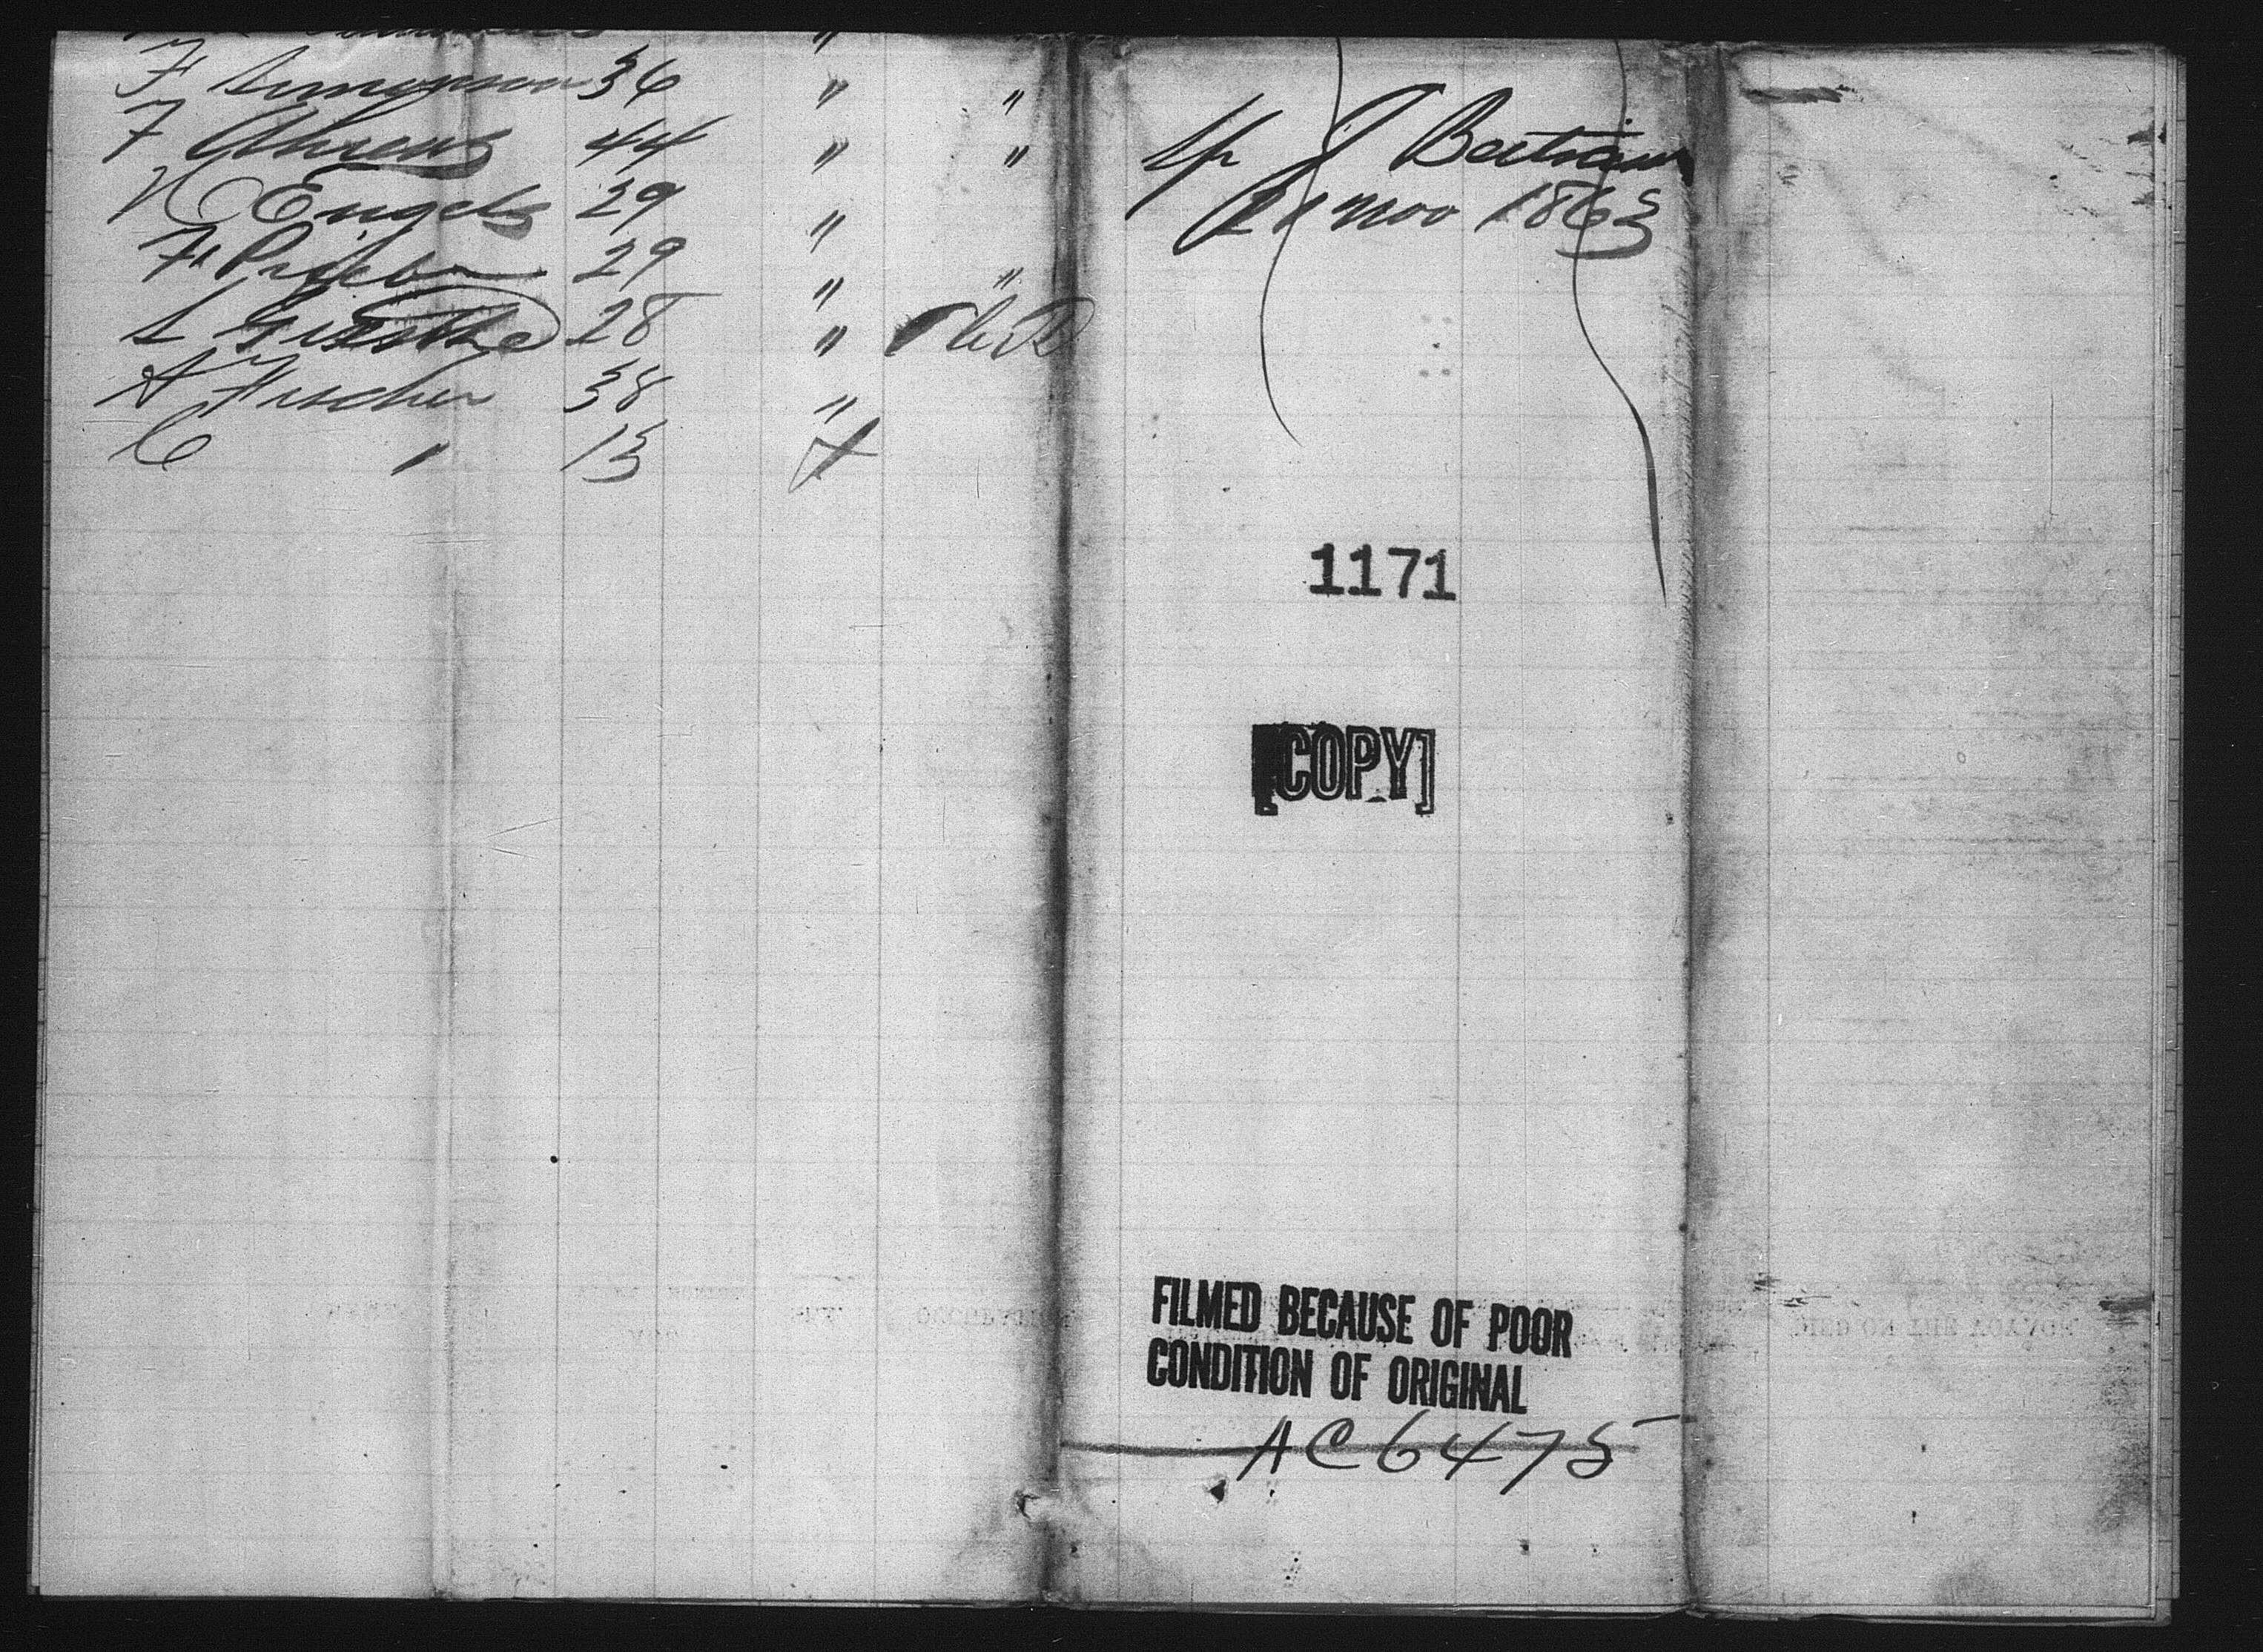 F Simonson 36 " "
F Ahrens 44 " "
H Engels 29 "
Fr Priebe 29 " "
L 28 "
A Fischer 38 "
C " 13
J Bertram
21 Nov 1863
1171
[COPY]
FILMED BECAUSE OF POOR
CONDITION OF ORIGINAL
AC 6475